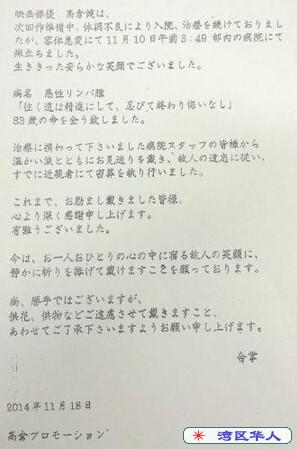 映画俳優　高倉健は、
次回作準備中、体調不良により入院、治療を続けておりまし
たが、容体急変にて11月10日午前3:49都内の病院にて
旅立ちました。
生ききった安らかな笑顔でございました。
病名　悪性リンパ腫
「往く道は精進にして、忍びて終わり悔いなし」
83歳の命を全う致しました。
治療に携わって下さいました病院スタッフの皆様から
温かい涙とともにお見送りを戴き、故人の遺志に従い、
すでに近親者にて密葬を執り行いました。
これまで、お励まし戴きました皆様、
心より深く感謝申し上げます。
有難うございました。
今は、お一人おひとりの心の中に宿る故人の笑顔に、
静かに祈りを捧げて戴けますことを願っております。
尚、勝手ではございますが、
供花、供物などご遠慮させて戴きますこと、
あわせてご了承下さいますようお願い申し上げます。
合掌
2014年11月18日
高倉プロモーション
湾区华人